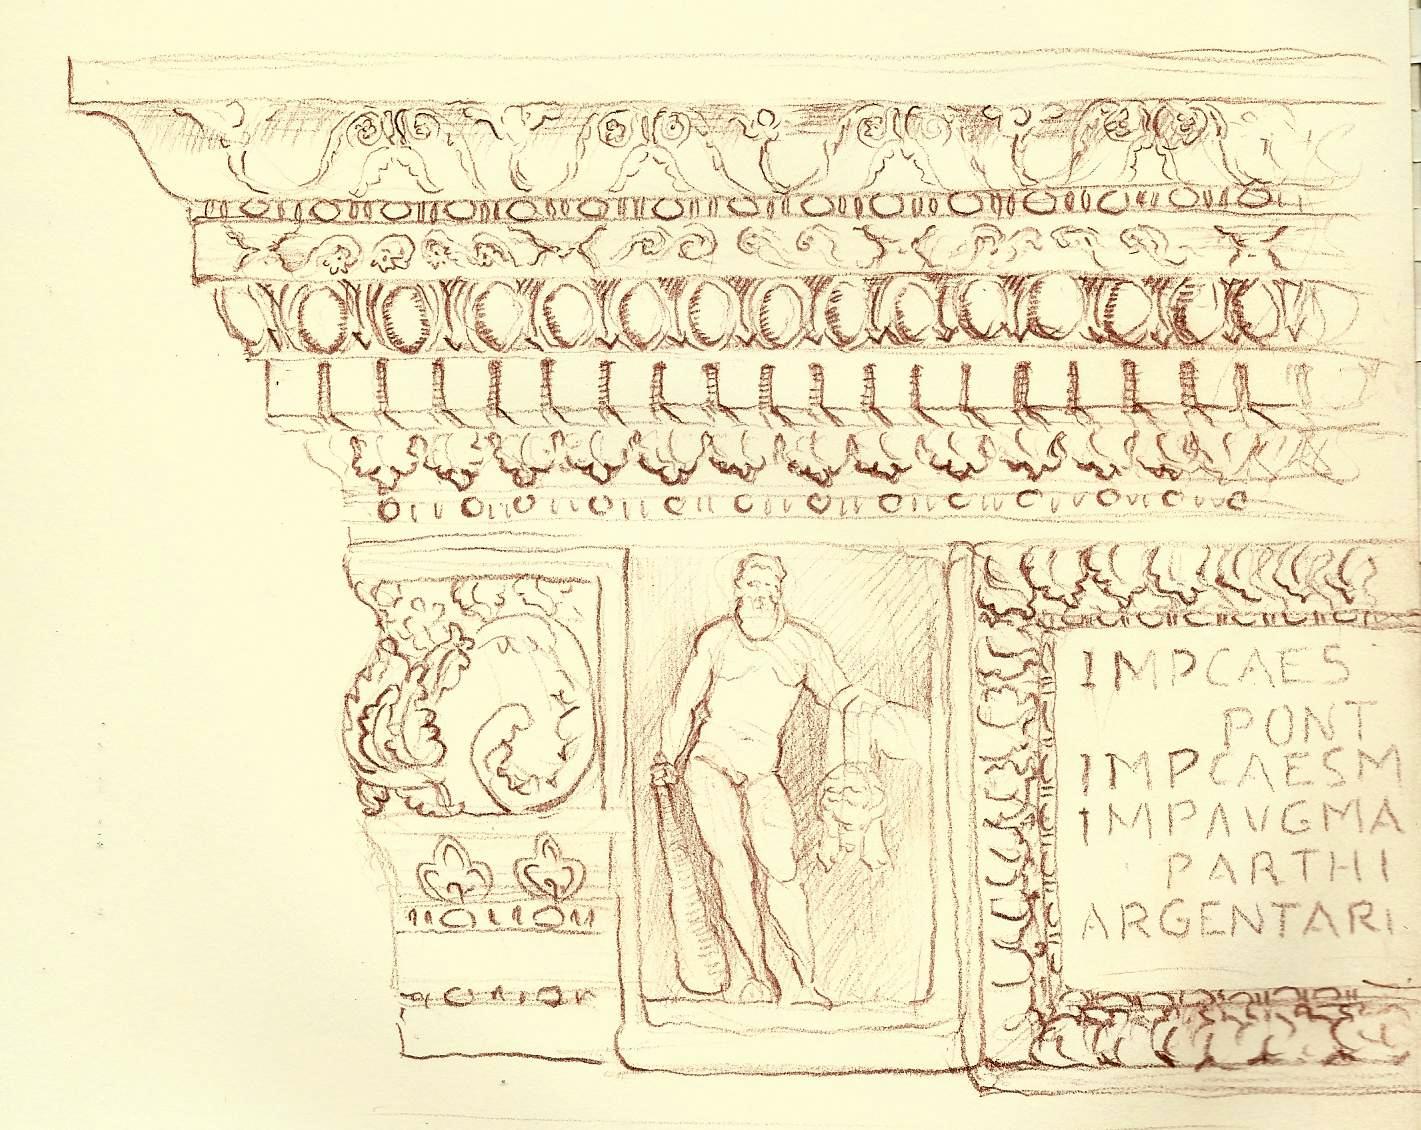 IMPCAES
PONT
IMPCAESM
IMPAVGMA
PARTHI
ARGENTARI